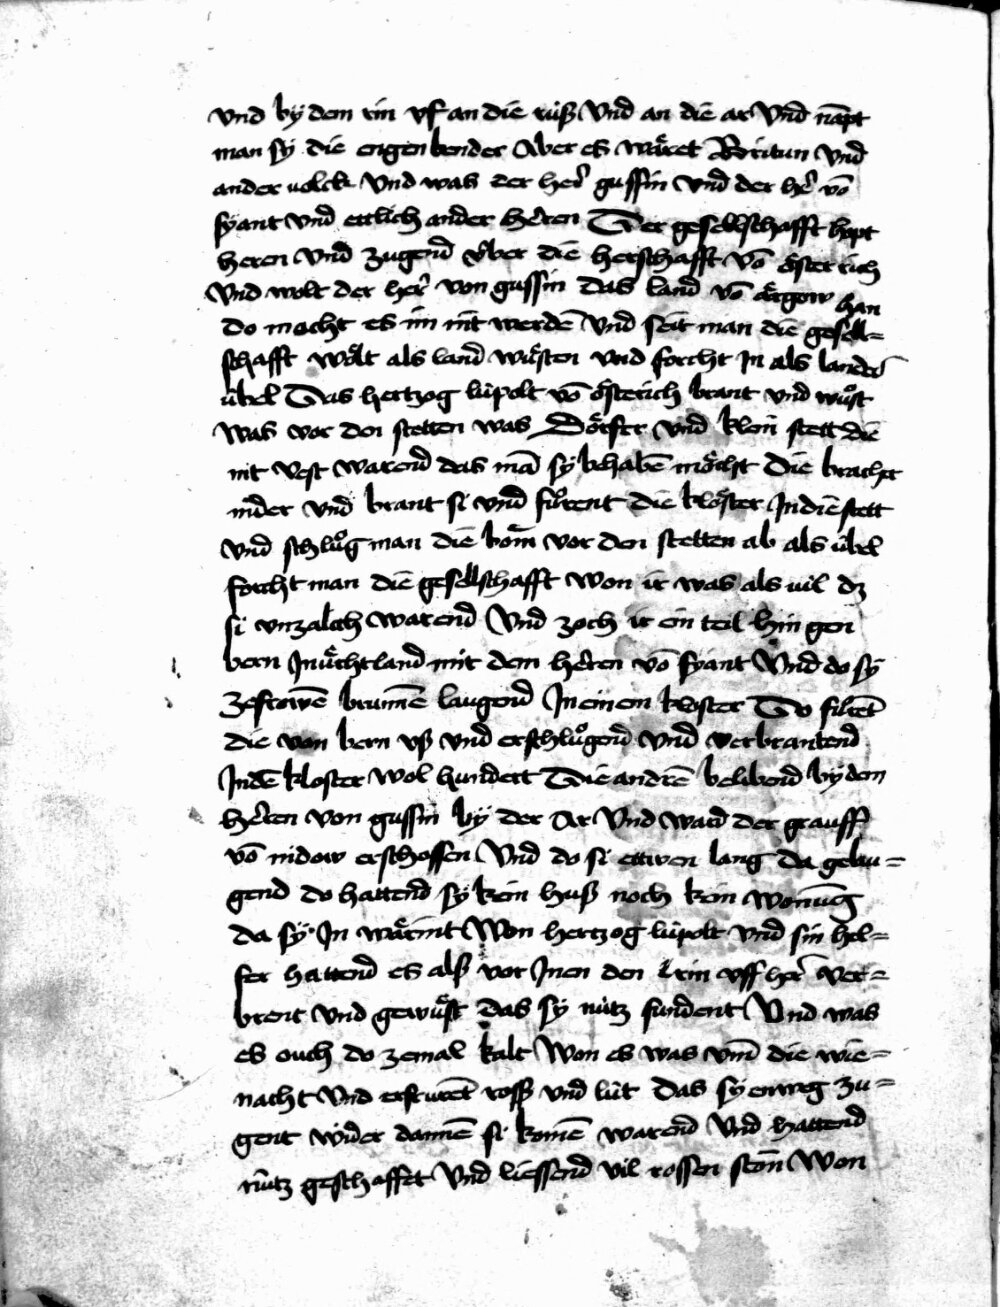 vnd by dem rin vf an die rüß Vnd an die ar Vnd nāpt
man sy die engenlender Aber es wăret Britun vnd
ander volck Vnd was der her̄ gussin Vnd der hr̄ vō
syant Vnd ettlich ander hĕren Der geselschafft hopt
heren Vnd zugend v̈ber die herschafft Vō ŏsterrich
Vnd wolt der her̄ von gussin das land vō ărgow han
do mocht es im nit werdē Vnd seit man die gesell=
schafft wŏlt als land wŭsten vnd forcht In als landē
übel Das hertzog lüpolt vō ŏsterich brant vnd wůst
Was vor den stetten was Dŏrfer Vnd klein stett die
nit vest warend das mā sy behabē mŏcht Die brachet
nider vnd brant si vnd fůrent die klŏster In die stett
Vnd schlůg man die bŏm vor den stetten ab als übel
forcht man die gesellschafft won ir was als vil dz
si vnzalich warend Vnd zoch ir ein teil hin gen
bern In ŭchtland mit dem hĕren vō syant Vnd do sy
ze frowē brunnē laugend In einem kloster Do fůret
die von bern vß vnd erschlůgend vnd verbrantend
In dē kloster wol hundert Die andrē belibend by dem
hĕren von gussin by der Ar Vnd ward der grauff
vō nidow erschossen Vnd do si ettwen lang da gelau=
gend do hattend sy kein huß noch kein wonūg
da sy In wărint Won hertzog lüpolt vnd sin hel=
fer hattend es alß vor Inen den rin vff her̄ ver=
brent vnd gewŭst das sy nütz fundent Vnd was
es ouch do zemal kalt Won es was vm̄ die wie=
nacht Vnd erfrurēt ross vnd lüt das sy enweg zu=
gent wider dannē si komē warend Vnd hattend
nütz geschaffet Vnd liessend vil rossen stōn Won